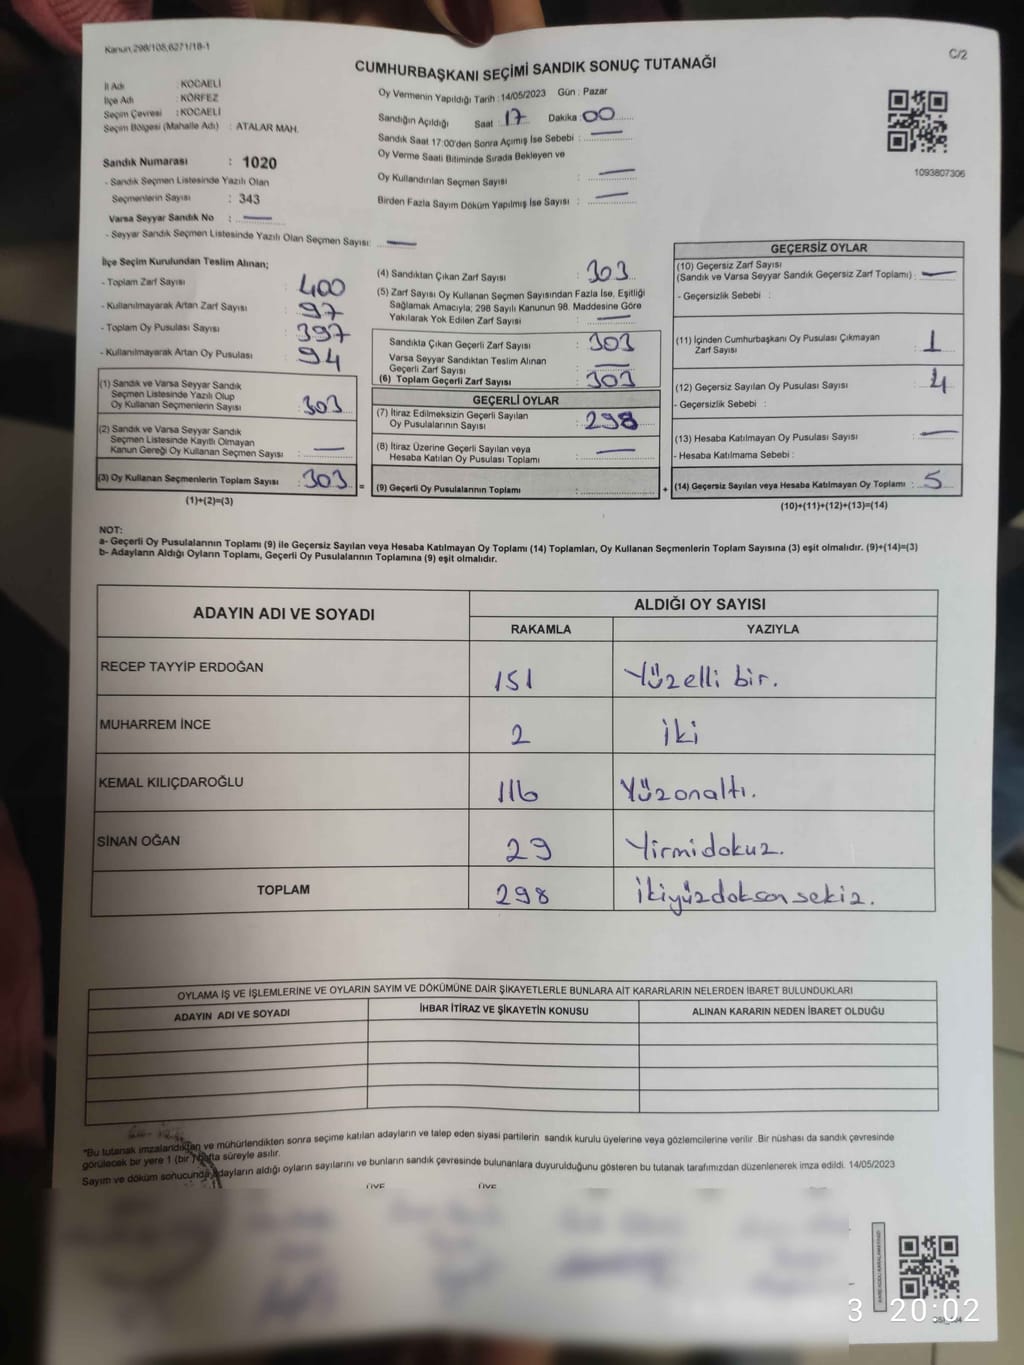 Kanun.298/108,6271/18-1
C/2
CUMHURBAŞKANI SEÇİMİ SANDIK SONUÇ TUTANAĞI
İl Adı : KOCAELİ
İlçe Adı : KÖRFEZ
Seçim Çevresi : KOCAELİ
Seçim Bölgesi (Mahalle Adı) : ATALAR MAH.
Sandık Numarası : 1020
- Sandık Seçmen Listesinde Yazılı Olan
Seçmenlerin Sayısı : 343
Varsa Seyyar Sandık No : —
- Seyyar Sandık Seçmen Listesinde Yazılı Olan Seçmen Sayısı: —
Oy Vermenin Yapıldığı Tarih : 14/05/2023 Gün : Pazar
Sandığın Açıldığı Saat : 17 Dakika : 00
Sandık Saat 17:00'den Sonra Açımış İse Sebebi : —
Oy Verme Saati Bitiminde Sırada Bekleyen ve
Oy Kullandırılan Seçmen Sayısı : —
Birden Fazla Sayım Döküm Yapılmış İse Sayısı : —
1093807306
İlçe Seçim Kurulundan Teslim Alınan;
- Toplam Zarf Sayısı : 400
- Kullanılmayarak Artan Zarf Sayısı : 97
- Toplam Oy Pusulası Sayısı : 397
- Kullanılmayarak Artan Oy Pusulası : 94
(1) Sandık ve Varsa Seyyar Sandık
Seçmen Listesinde Yazılı Olup
Oy Kullanan Seçmenlerin Sayısı : 303
(2) Sandık ve Varsa Seyyar Sandık
Seçmen Listesinde Kayıtlı Olmayan
Kanun Gereği Oy Kullanan Seçmen Sayısı : —
(3) Oy Kullanan Seçmenlerin Toplam Sayısı : 303
(1)+(2)=(3)
(4) Sandıktan Çıkan Zarf Sayısı : 303
(5) Zarf Sayısı Oy Kullanan Seçmen Sayısından Fazla İse, Eşitliği
Sağlamak Amacıyla; 298 Sayılı Kanunun 98. Maddesine Göre
Yakılarak Yok Edilen Zarf Sayısı : —
Sandıkta Çıkan Geçerli Zarf Sayısı : 303
Varsa Seyyar Sandıktan Teslim Alınan
Geçerli Zarf Sayısı : —
(6) Toplam Geçerli Zarf Sayısı : 303
GEÇERLİ OYLAR
(7) İtiraz Edilmeksizin Geçerli Sayılan
Oy Pusulalarının Sayısı : 298
(8) İtiraz Üzerine Geçerli Sayılan veya
Hesaba Katılan Oy Pusulası Toplamı : —
= (9) Geçerli Oy Pusulalarının Toplamı :
GEÇERSİZ OYLAR
(10) Geçersiz Zarf Sayısı
(Sandık ve Varsa Seyyar Sandık Geçersiz Zarf Toplamı) : —
- Geçersizlik Sebebi :
(11) İçinden Cumhurbaşkanı Oy Pusulası Çıkmayan
Zarf Sayısı : 1
(12) Geçersiz Sayılan Oy Pusulası Sayısı : 4
- Geçersizlik Sebebi :
(13) Hesaba Katılmayan Oy Pusulası Sayısı : —
- Hesaba Katılmama Sebebi :
+ (14) Geçersiz Sayılan veya Hesaba Katılmayan Oy Toplamı : 5
(10)+(11)+(12)+(13)=(14)
NOT:
a- Geçerli Oy Pusulalarının Toplamı (9) ile Geçersiz Sayılan veya Hesaba Katılmayan Oy Toplamı (14) Toplamları, Oy Kullanan Seçmenlerin Toplam Sayısına (3) eşit olmalıdır. (9)+(14)=(3)
b- Adayların Aldığı Oyların Toplamı, Geçerli Oy Pusulalarının Toplamına (9) eşit olmalıdır.
ADAYIN ADI VE SOYADI
ALDIĞI OY SAYISI
RAKAMLA YAZIYLA
RECEP TAYYİP ERDOĞAN 151 Yüzelli bir.
MUHARREM İNCE 2 iki
KEMAL KILIÇDAROĞLU 116 Yüzonaltı.
SİNAN OĞAN 29 Yirmidokuz.
TOPLAM 298 ikiyüzdoksansekiz.
OYLAMA İŞ VE İŞLEMLERİNE VE OYLARIN SAYIM VE DÖKÜMÜNE DAİR ŞİKAYETLERLE BUNLARA AİT KARARLARIN NELERDEN İBARET BULUNDUKLARI
ADAYIN ADI VE SOYADI İHBAR İTİRAZ VE ŞİKAYETİN KONUSU ALINAN KARARIN NEDEN İBARET OLDUĞU
*Bu tutanak imzalandıktan ve mühürlendikten sonra seçime katılan adayların ve talep eden siyasi partilerin sandık kurulu üyelerine veya gözlemcilerine verilir .Bir nüshası da sandık çevresinde
görülecek bir yere 1 (bir) hafta süreyle asılır.
Sayım ve döküm sonucunda,adayların aldığı oyların sayılarını ve bunların sandık çevresinde bulunanlara duyurulduğunu gösteren bu tutanak tarafımızdan düzenlenerek imza edildi. 14/05/2023
ÜYE ÜYE
3 20:02